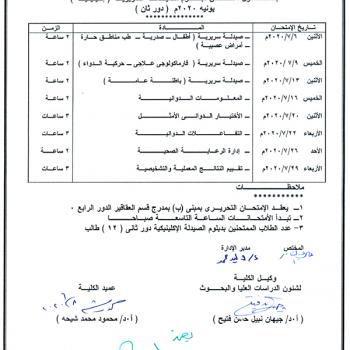 يونيه ٢٠٢٠م ( دور ثان )
تاريخ الإمتحان المـــادة الزمـن
الأثنين ٢٠٢٠/٧/٦م – صيدلة سريرية ( أطفال ــ صدرية ــ طب مناطق حارة ٢ ساعـة
ــ أمراض عصبية )
الخميس ٢٠٢٠/٧/٩م – صيدلة سريرية ( فارماكولوجى علاجى ــ حركية الدواء ) ٢ ساعـة
الأثنين ٢٠٢٠/٧/١٣م – صيدلة سريرية ( باطنة عامة ) ٢ ساعـة
الخميس ٢٠٢٠/٧/١٦م – المعلومات الدوائية ٢ ساعـة
الأثنين ٢٠٢٠/٧/٢٠م – الأختيار الدوائى الأمثل ٣ ساعات
الأربعاء ٢٠٢٠/٧/٢٢م – التفاعلات الدوائية ٣ ساعات
الأحد ٢٠٢٠/٧/٢٦م – إدارة الرعاية الصحية ٢ ساعـة
الأربعاء ٢٠٢٠/٧/٢٩م – تقييم النتائج المعملية والتشخيصية ٣ ساعات
ملاحظات
١ــ يعقد الإمتحان التحريرى بمبنى (ب) بمدرج قسم العقاقير الدور الرابع .
٢ــ تبدأ الأمتحانات الساعة التاسعة صباحا
٣ــ عدد الطلاب الممتحنين بدبلوم الصيدلة الإكلينيكية دور ثانى ( ١٢ ) طالب
المختص مدير الإدارة
وكيل الكلية
لشئون الدراسات العليا والبحوث عميد الكلية
( أ.د/ جيهان نبيل حسن فتيح ) ( أ.د/ محمود محمد شيحه )